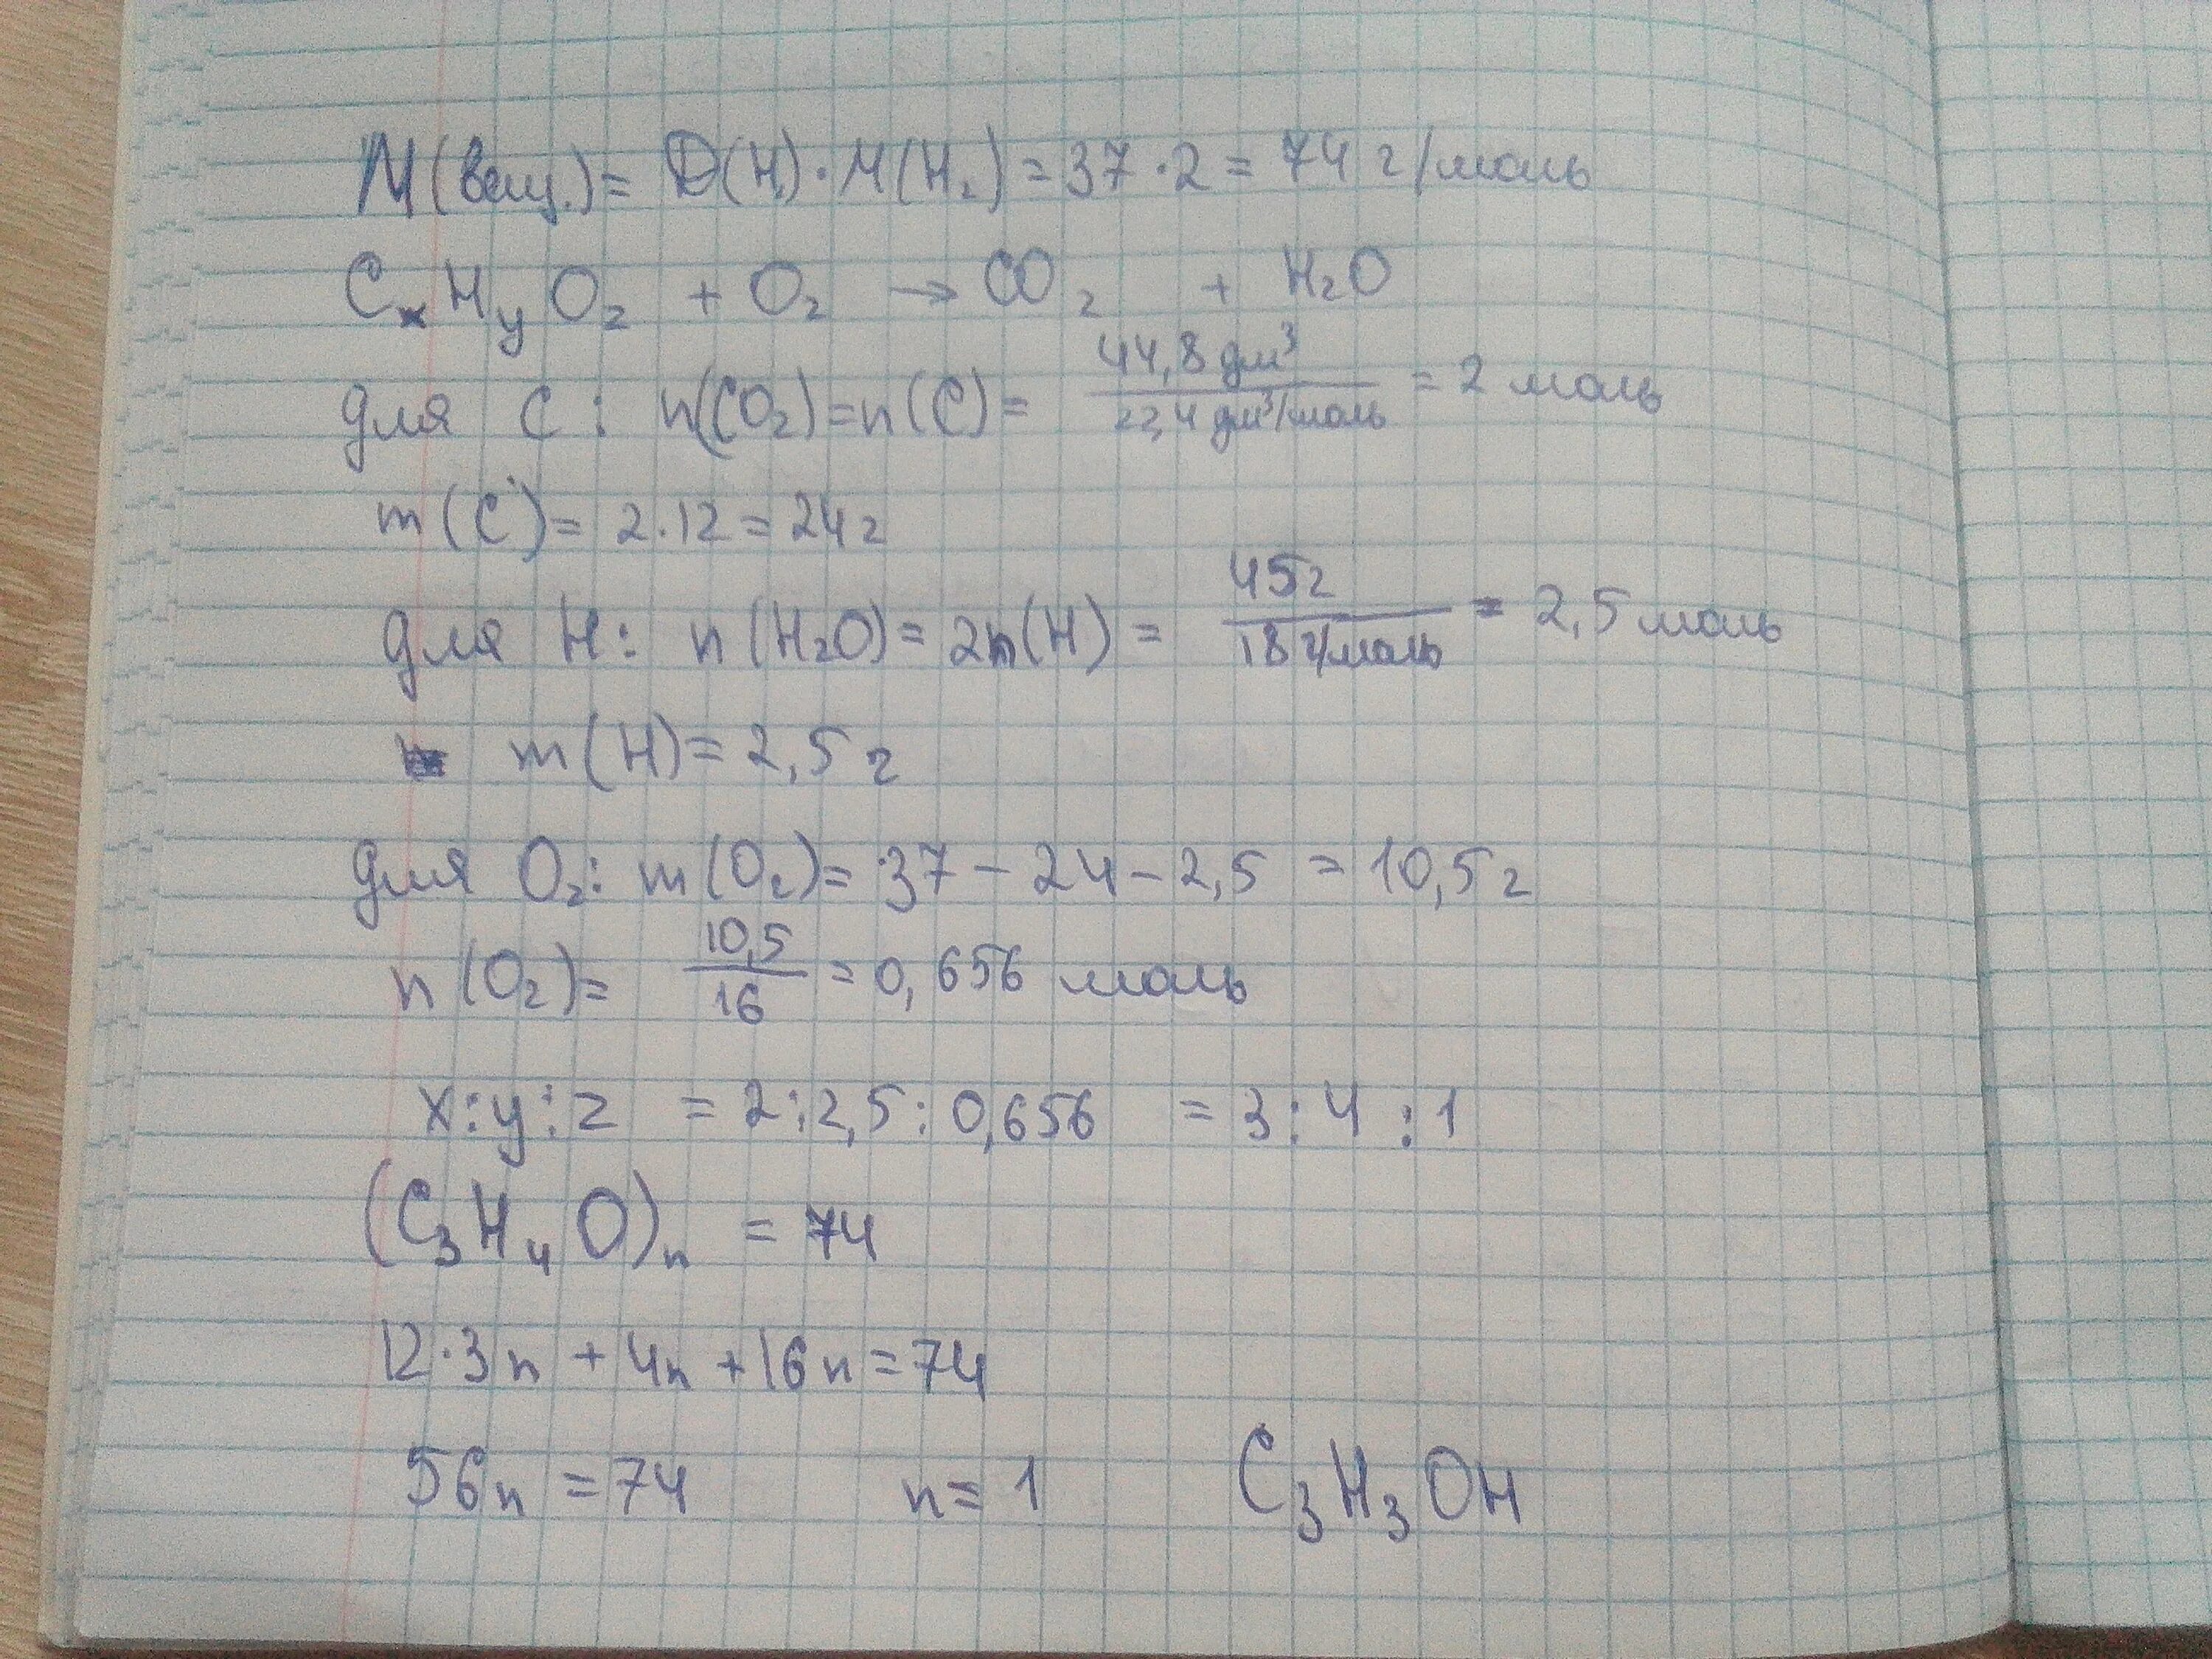 M(вещ.) = D(H₂)·M(H₂) = 37·2 = 74 г/моль
CxHyOz + O₂ → CO₂ + H₂O
для C: n(CO₂)=n(C)= 44,8 дм³ / 22,4 дм³/моль = 2 моль
m(C)= 2·12 = 24 г
для H: n(H₂O)= 2n(H) = 45 г / 18 г/моль = 2,5 моль
m(H)= 2,5 г
для O₂: m(O₂)= 37 - 24 - 2,5 = 10,5 г
n(O₂)= 10,5 / 16 = 0,656 моль
x:y:z = 2:2,5:0,656 = 3:4:1
(C₃H₄O)n = 74
12·3n + 4n + 16n = 74
56n = 74 n = 1 C₃H₃OH